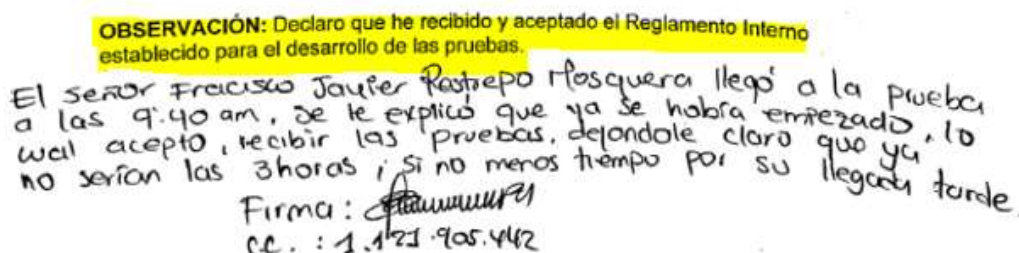 OBSERVACIÓN: Declaro que he recibido y aceptado el Reglamento Interno
establecido para el desarrollo de las pruebas.
El señor Fracisco Javier Restrepo Mosquera llegó a la prueba
a las 9:40 am, se le explicó que ya se había empezado, lo
cual acepto, recibir las pruebas, dejandole claro que ya
no serían las 3horas, si no menos tiempo por su llegada tarde.
Firma:
CC. : 1.121.905.442